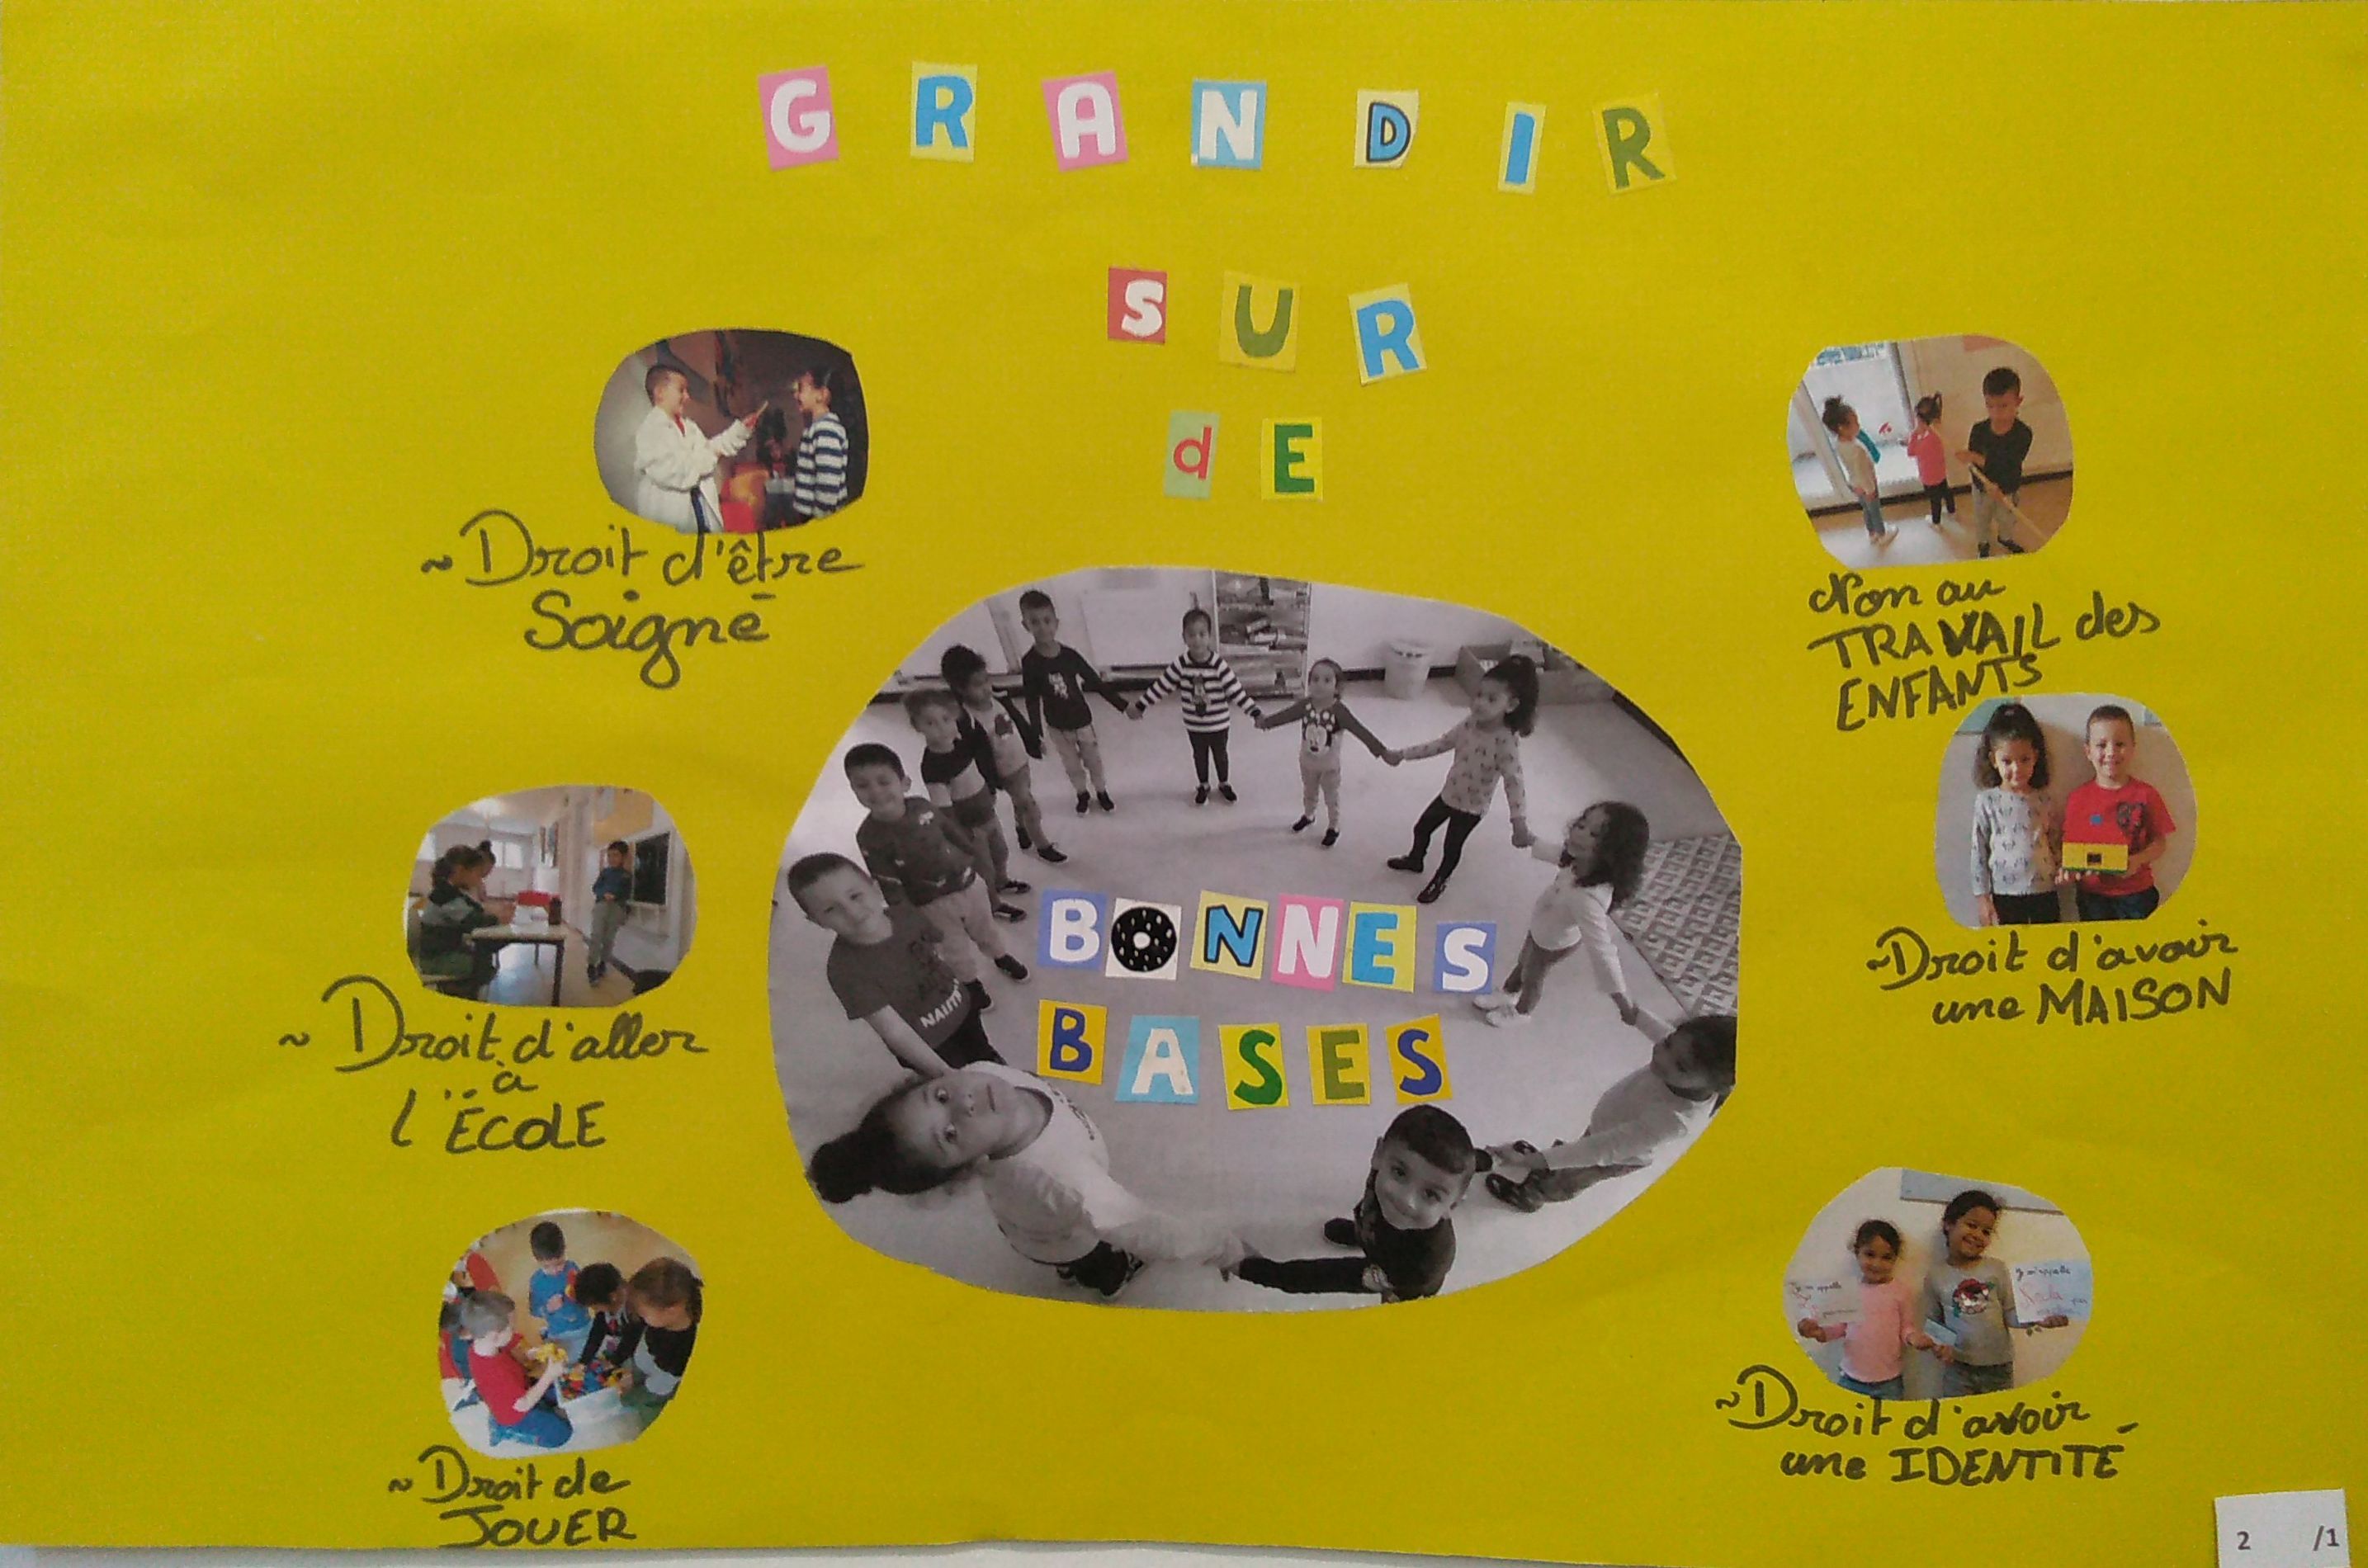 GRANDIR
SUR
dE
BONNES
BASES
~ Droit d'être
Soigné
~ Droit d'aller
à
l'ÉCOLE
~ Droit de
JOUER
Non au
TRAVAIL des
ENFANTS
~ Droit d'avoir
une MAISON
~ Droit d'avoir
une IDENTITÉ
NAUTI
Je m'appelle
2 /1